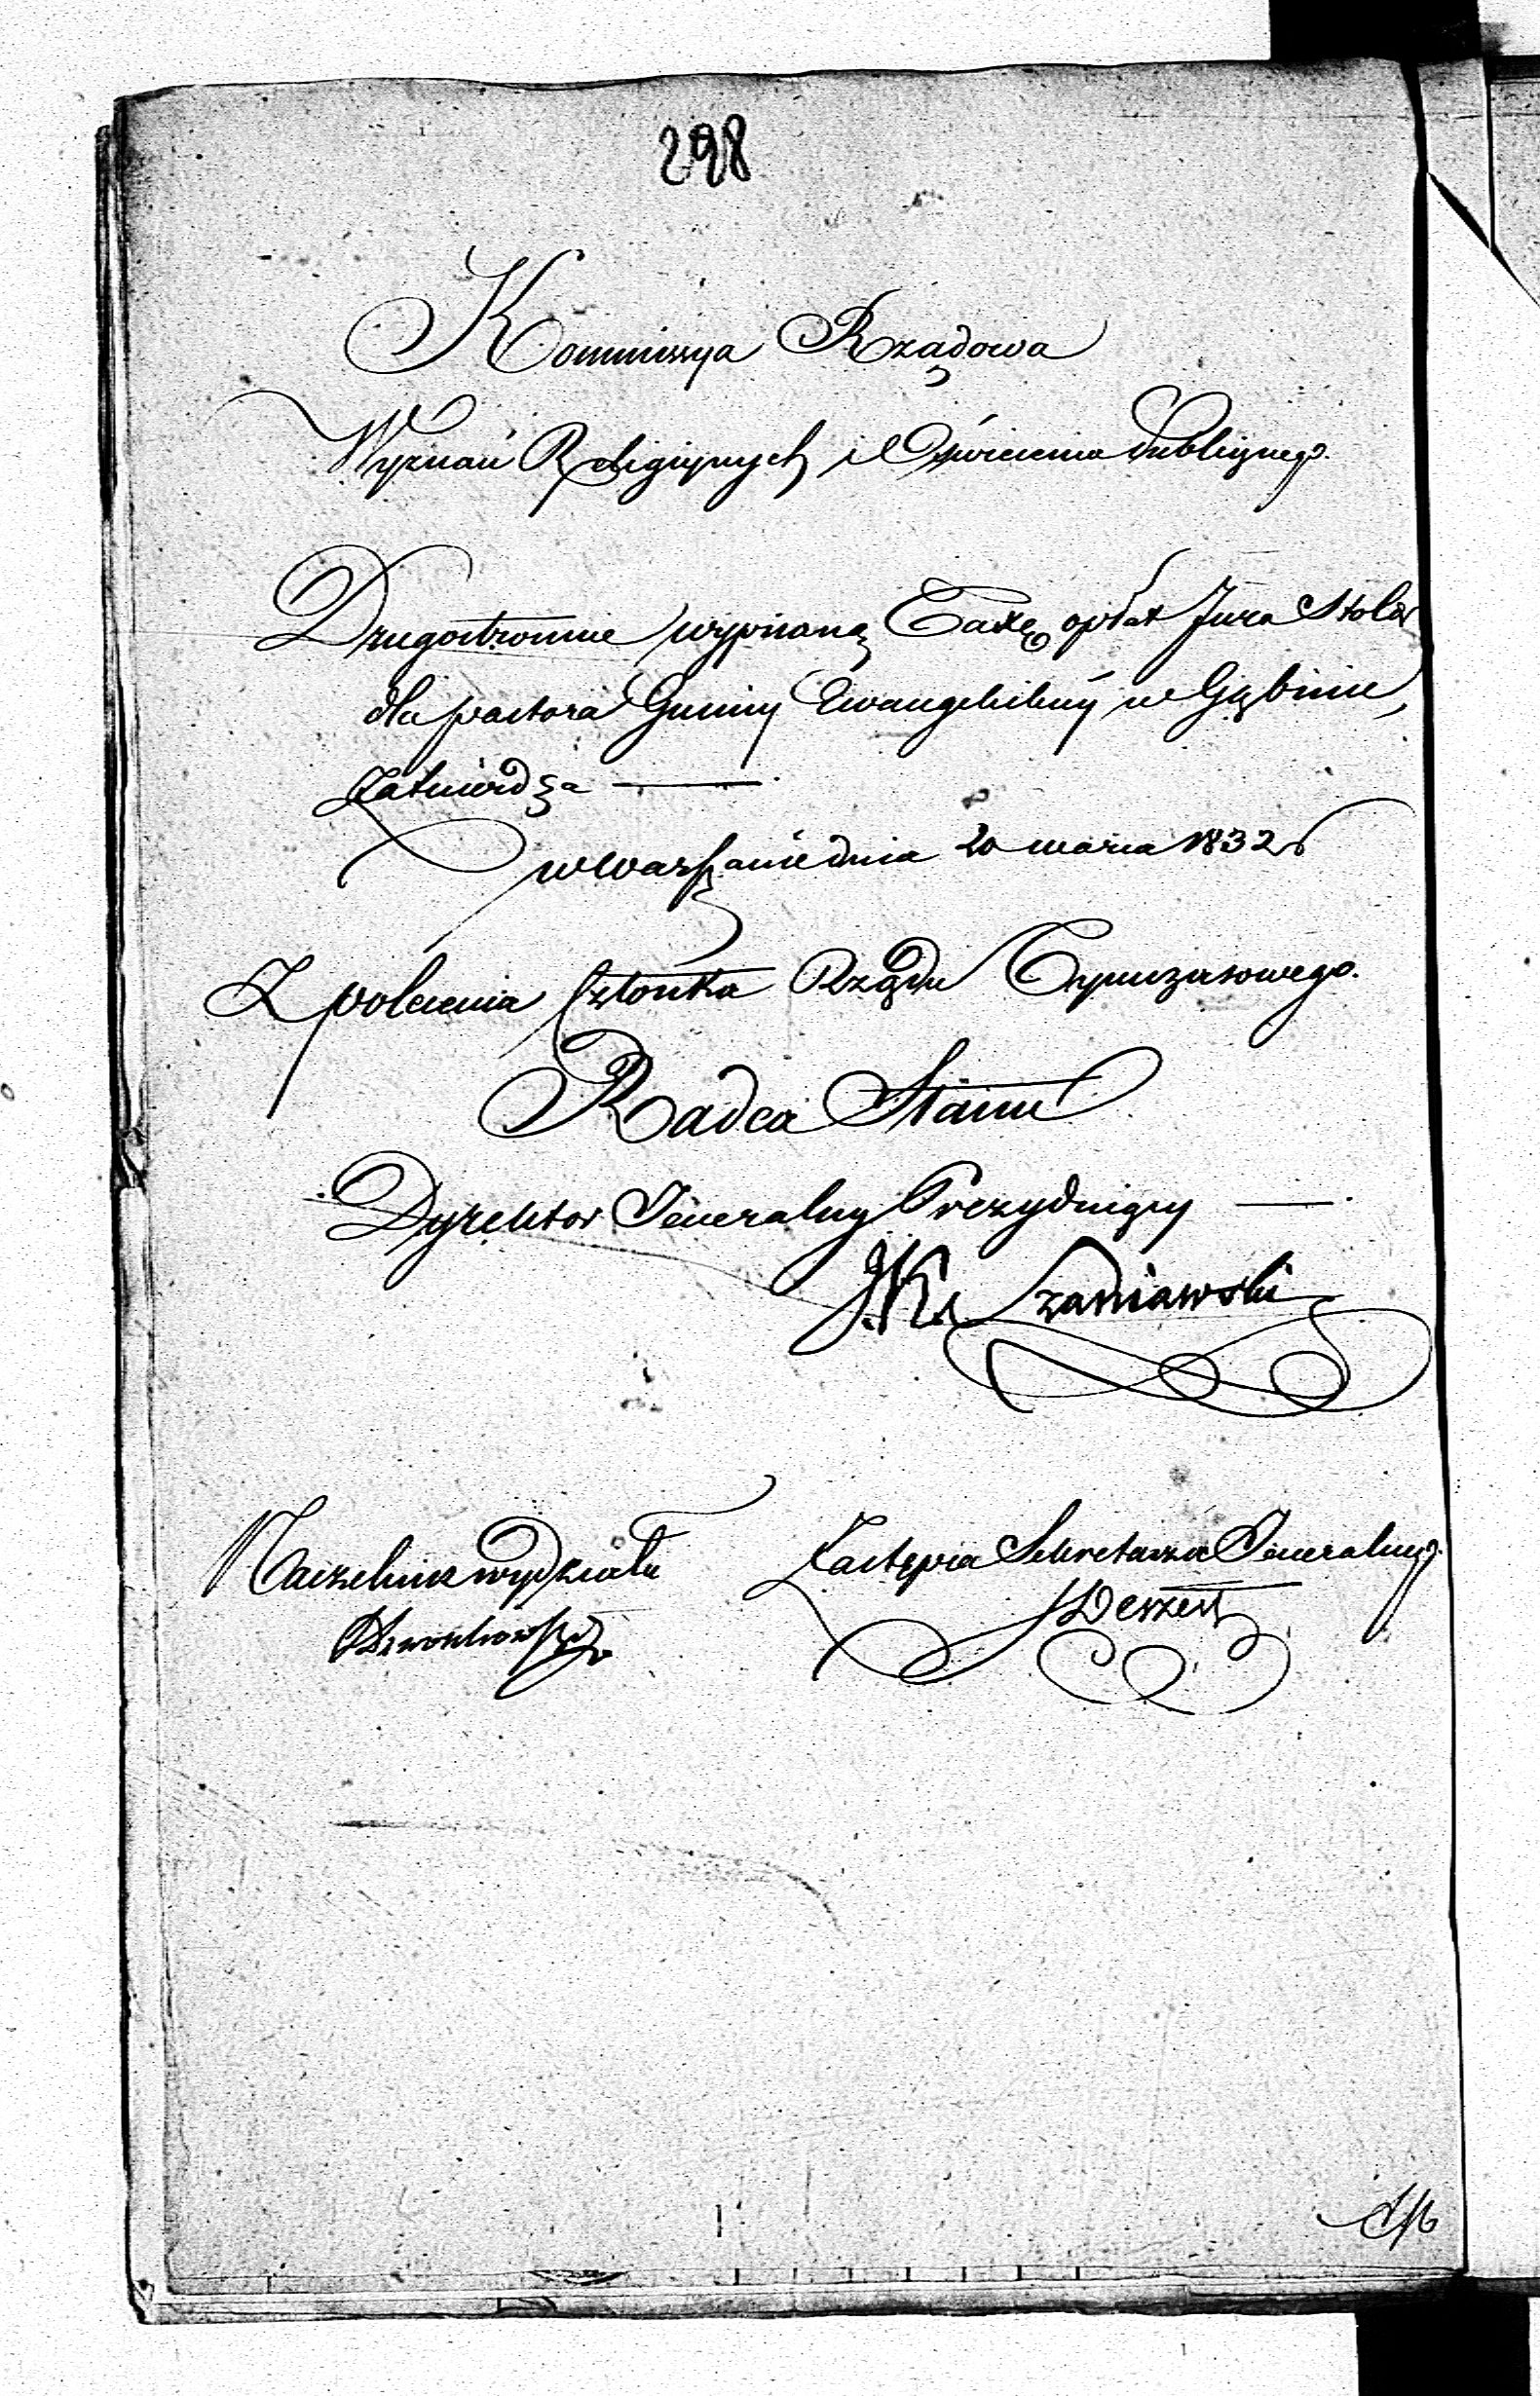 298
Kommissya Rządowa
Wyznań Religiynych i Oświecenia Publicznego.
Drugostronnie wypisaną Taxę opłat Jura Stolae
dla pastora Gminy Ewangelickiey w Gąbinie,
Zatwierdza —
w Warszawie dnia 20 marca 1832 r
Z polecenia Członka Rządu Tymczasowego.
Radca Stanu
Dyrektor Jeneralny Prezyduiący —
J.K. Szaniawski
Naczelnik wydziału
Zastępca Sekretarza Jeneralnego.